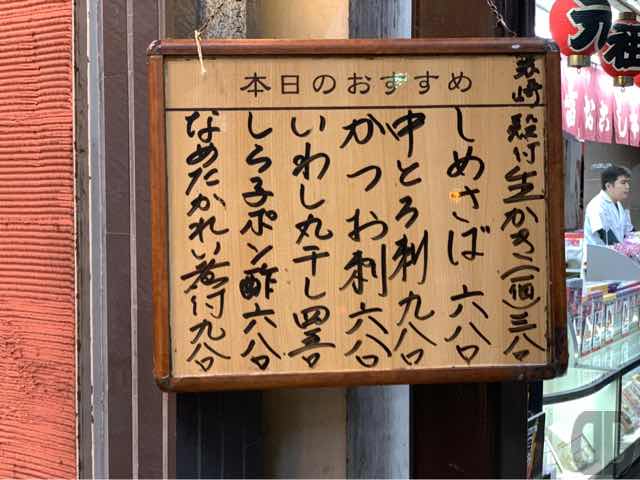 本日のおすすめ
殻付生かき(一個)三八〇
しめさば 六八〇
中とろ刺 九八〇
かつお刺 六八〇
いわし丸干し 四五〇
しら子ポン酢 六八〇
なめたかれい煮付 九八〇